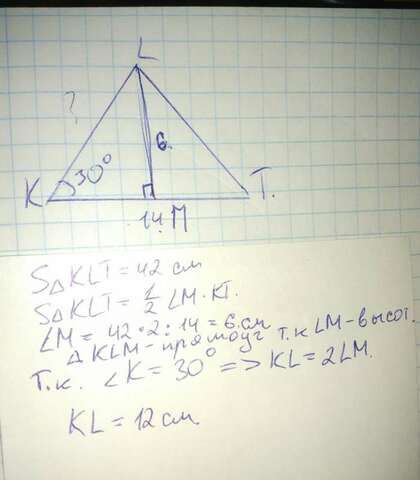 L
?
6.
30°
K
T.
14. M
S△KLT = 42 см
S△KLT = 1/2 LM · KT.
LM = 42 · 2 : 14 = 6 см
△ KLM - прямоуг т.к LM - высот.
Т.к. ∠K = 30° => KL = 2LM.
KL = 12 см